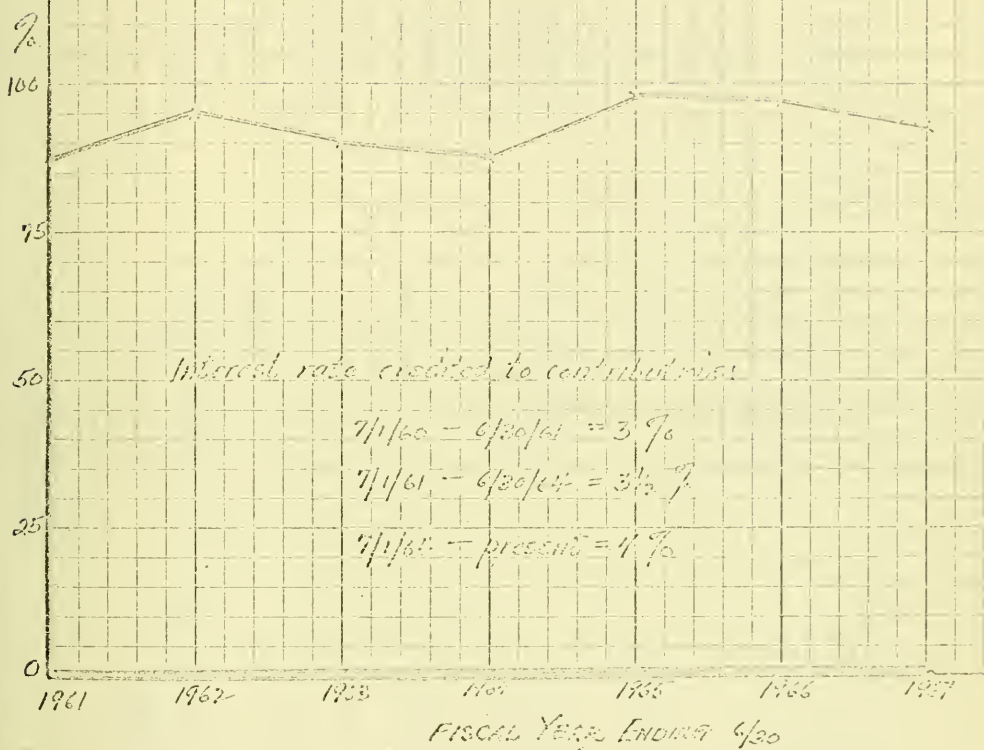 %
100
75
50
Interest rate credited to contributions:
7/1/60 - 6/30/61 = 3 %
7/1/61 - 6/30/64 = 3½ %
25
7/1/64 - present = 4 %
0
1961 1962 1963 1964 1965 1966 1967
FISCAL YEAR ENDING 6/30